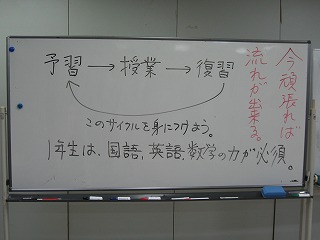 予習→授業→復習
このサイクルを身につけよう。
1年生は、国語,英語,数学の力が必須。
今頑張れば
流れが出来る。